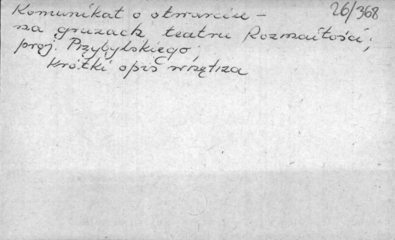 Komunikat o otwarciu - 26/368
na gruzach teatru Rozmaitości;
proj. Przybylskiego;
krótki opis wnętrza